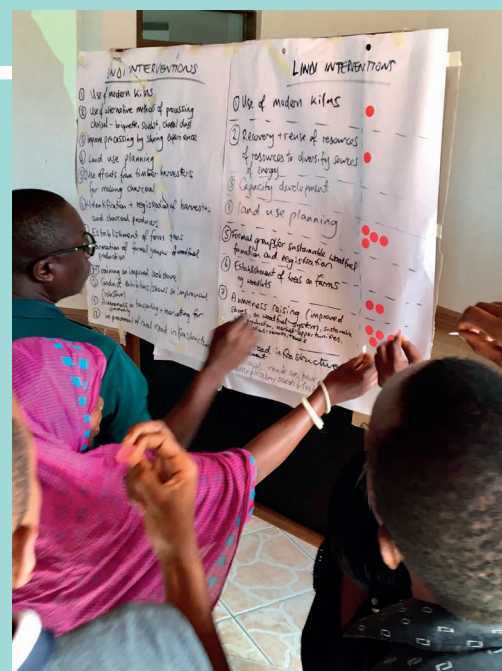 LINDI INTERVENTIONS
① Use of modern kilns
② Use of alternative method of processing
charcoal - briquette, charcoal dust
③ Improve processing by sharing experience
④ Land use planning
⑤ Use of ends from timber harvesters
for making charcoal
⑥ Identification + registration of harvesters
and charcoal producers
Establishment of farm trees
Formation of formal groups of woodfuel
production
Training on improved
Conduct exhibitions/shows on improved
marketing for
improvement of road infrastructure
LINDI INTERVENTIONS
① Use of modern kilns
② Recovery + reuse of resources
of resources to diversify sources
of energy
③ Capacity development
④ land use planning
⑤ Formal groups for sustainable woodfuel
formation and registration
⑥ Establishment of trees on farms
eg woodlots
⑦ Awareness raising (improved
stoves, on woodfuel system, sustainable
production, market opportunities,
road infrastructure